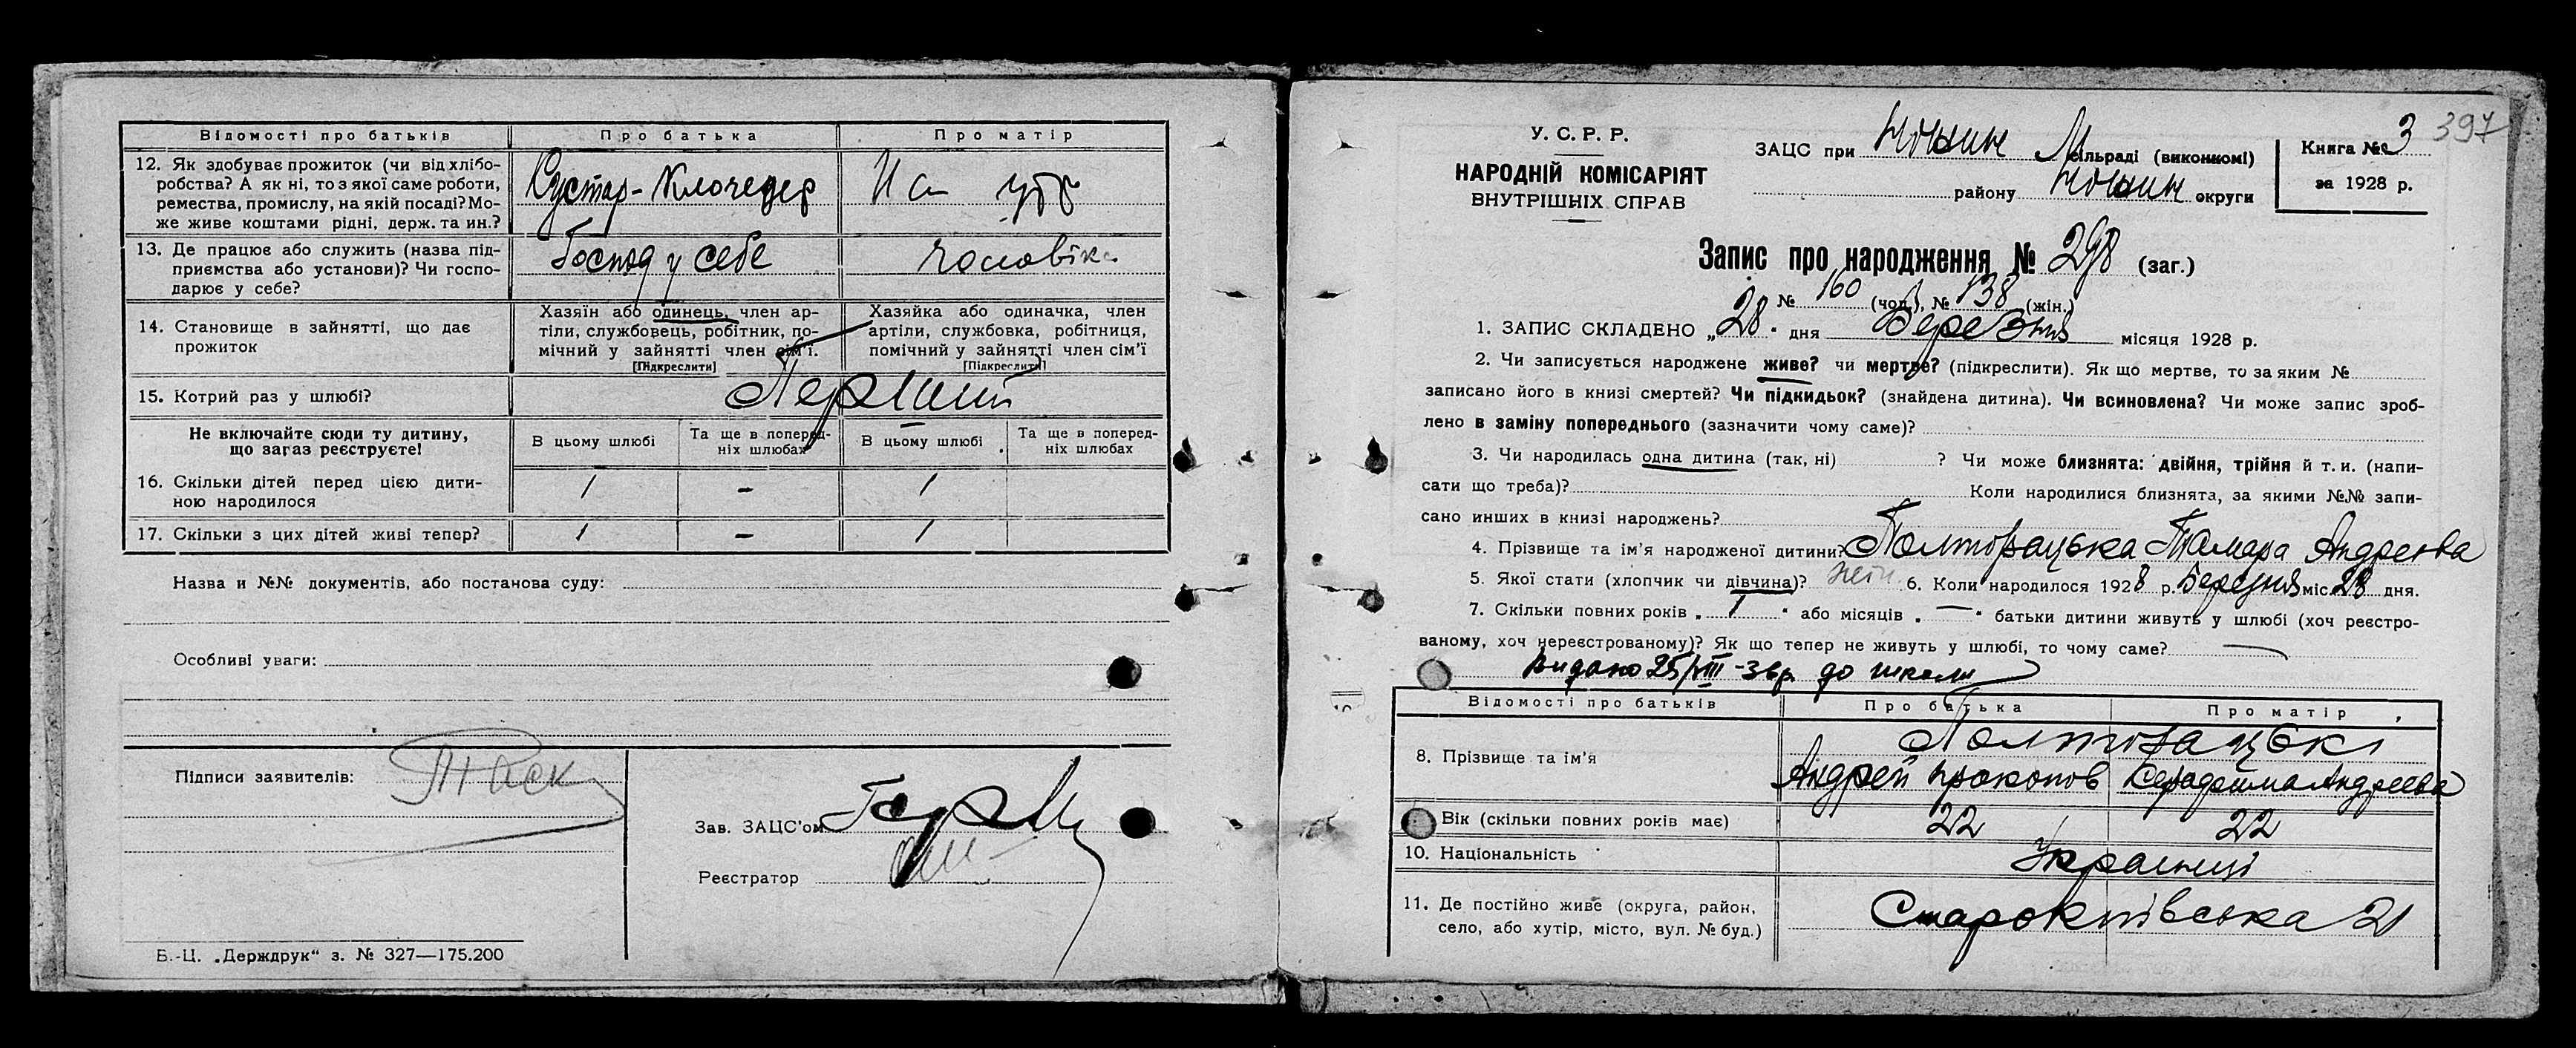 Відомості про батьків
Про батька
Про матір
12. Як здобуває прожиток (чи від хлібо-
робства? А як ні, то з якої саме роботи,
ремества, промислу, на якій посаді? Мо-
же живе коштами рідні, держ. та ин.?
Кустар-Клочедер
На утр
13. Де працює або служить (назва під-
приємства або установи)? Чи госпо-
дарює у себе?
Господ у себе
чоловіка
14. Становище в зайнятті, що дає
прожиток
Хазяїн або одинець, член ар-
тілі, службовець, робітник, по-
мічний у зайнятті член сім'ї.
[Підкреслити]
Хазяйка або одиначка, член
артілі, службовка, робітниця,
помічний у зайнятті член сім'ї
[Підкреслити]
15. Котрий раз у шлюбі?
Перший
Не включайте сюди ту дитину,
що загаз реєструєте!
В цьому шлюбі
Та ще в поперед-
ніх шлюбах
В цьому шлюбі
Та ще в поперед-
ніх шлюбах
16. Скільки дітей перед цією дити-
ною народилося
1 - 1
17. Скільки з цих дітей живі тепер?
1 - 1
Назва и №№ документів, або постанова суду:
Особливі уваги:
Підписи заявителів:
Зав. ЗАЦС'ом
Реєстратор
Б.-Ц. „Держдрук“ з. № 327—175.200
У. С. Р. Р.
НАРОДНІЙ КОМІСАРІЯТ
ВНУТРІШНІХ СПРАВ
ЗАЦС при Ніжин М сільраді (виконкомі)
району Ніжин округи
Книга № 3
за 1928 р.
397
Запис про народження № 298 (заг.)
№ 160 (чол.), № 138 (жін.)
1. ЗАПИС СКЛАДЕНО „28“ дня Березня місяця 1928 р.
2. Чи записується народжене живе? чи мертве? (підкреслити). Як що мертве, то за яким №
записано його в книзі смертей? Чи підкидьок? (знайдена дитина). Чи всиновлена? Чи може запис зроб-
лено в заміну попереднього (зазначити чому саме)?
3. Чи народилась одна дитина (так, ні) ? Чи може близнята: двійня, трійня й т. и. (напи-
сати що треба)? Коли народилися близнята, за якими №№ запи-
сано инших в книзі народжень?
4. Прізвище та ім'я народженої дитини? Полторацька Тамара Андреева
5. Якої стати (хлопчик чи дівчина)? жін. 6. Коли народилося 1928 р. Березня міс. 28 дня.
7. Скільки повних років „ 1 “ або місяців „ — “ батьки дитини живуть у шлюбі (хоч реєстро-
ваному, хоч нереєстрованому)? Як що тепер не живуть у шлюбі, то чому саме? —
Видано 25/VIII-36р. до школи
Відомості про батьків
Про батька
Про матір
8. Прізвище та ім'я
Полторацькі
Андрей Прокопов
Андреева
Вік (скільки повних років має)
22
22
10. Національність
Українці
11. Де постійно живе (округа, район,
село, або хутір, місто, вул. № буд.)
Старокиївська 21